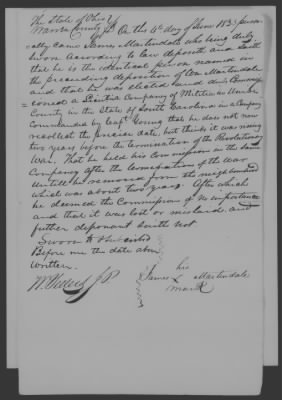 The State of Ohio
County SS On the 4th day of June 183 person
ally came James Martindale who being duly
sworn according to law deposeth and saith
that he is the identical person named in
the preceding deposition of Wm Martindale
and that he was elected and duly Commis
= sioned a Lieutenant Company of Militia in
County in the State of South Carolina in a Company
Commanded by Capt Young that he does not now
recollect the precise date, but thinks it was
two years before the termination of the Revolutionary
War. That he held his Commission in the same
Company after the termination of the War
untill he removed from the neighbourhood
which was about two years. After which
he deemed the Commission of no importance
and that it was lost or mislaid and
futher deponent saith not
Sworn to & Subscribed
Before me the date above
written.
J P.
his
James X Martindale
mark